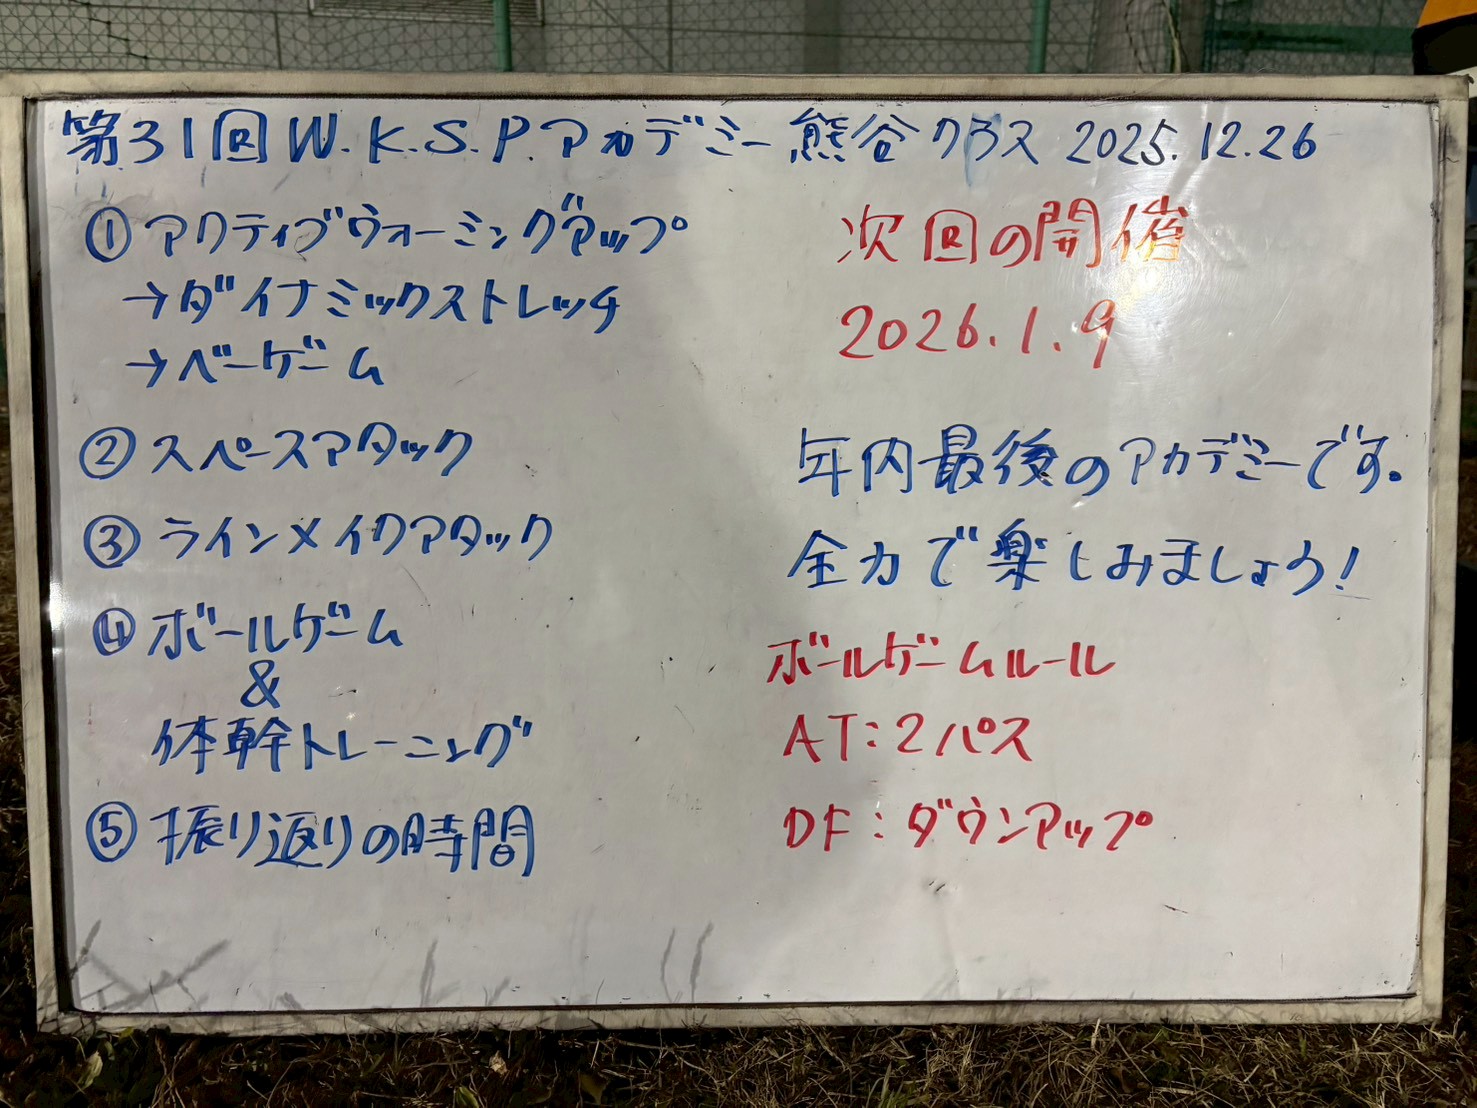 第31回W.K.S.P.アカデミー熊谷クラス 2025.12.26
①アクティブウォーミングアップ
→ダイナミックストレッチ
→ベーゲーム
②スペースアタック
③ラインメイクアタック
④ボールゲーム
&
体幹トレーニング
⑤振り返りの時間
次回の開催
2026.1.9
年内最後のアカデミーです。
全力で楽しみましょう!
ボールゲームルール
AT:2パス
DF:ダウンアップ